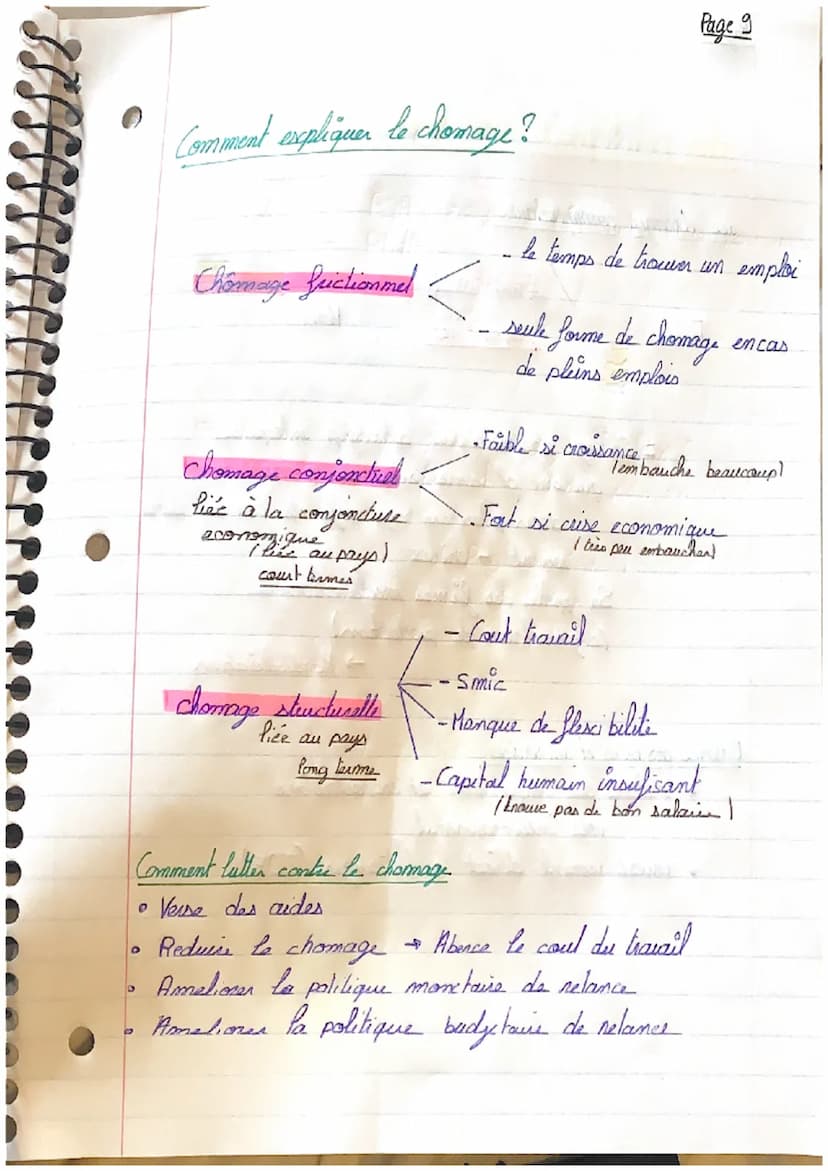 Page 9
Comment expliquer le chomage ?
- le temps de trouver un emploi
Chômage frictionnel
- seule forme de chomage en cas
de pleins emplois
. Faible si croissance
(embauche beaucoup)
Chomage conjonctuel
liée à la conjoncture
economique
(liée au pays)
court termes
. Fort si crise economique
(très peu embaucher)
- Cout travail
- Smic
Chomage structurelle
liée au pays
long terme
- Manque de flexibilité
- Capital humain insufisant
(trouve pas de bon salaire)
Comment lutter contre le chomage
• Verse des aides
• Reduire le chomage → le cout du travail
• Ameliorer la politique monetaire de relance
• Ameliorer la politique budgetaire de relance